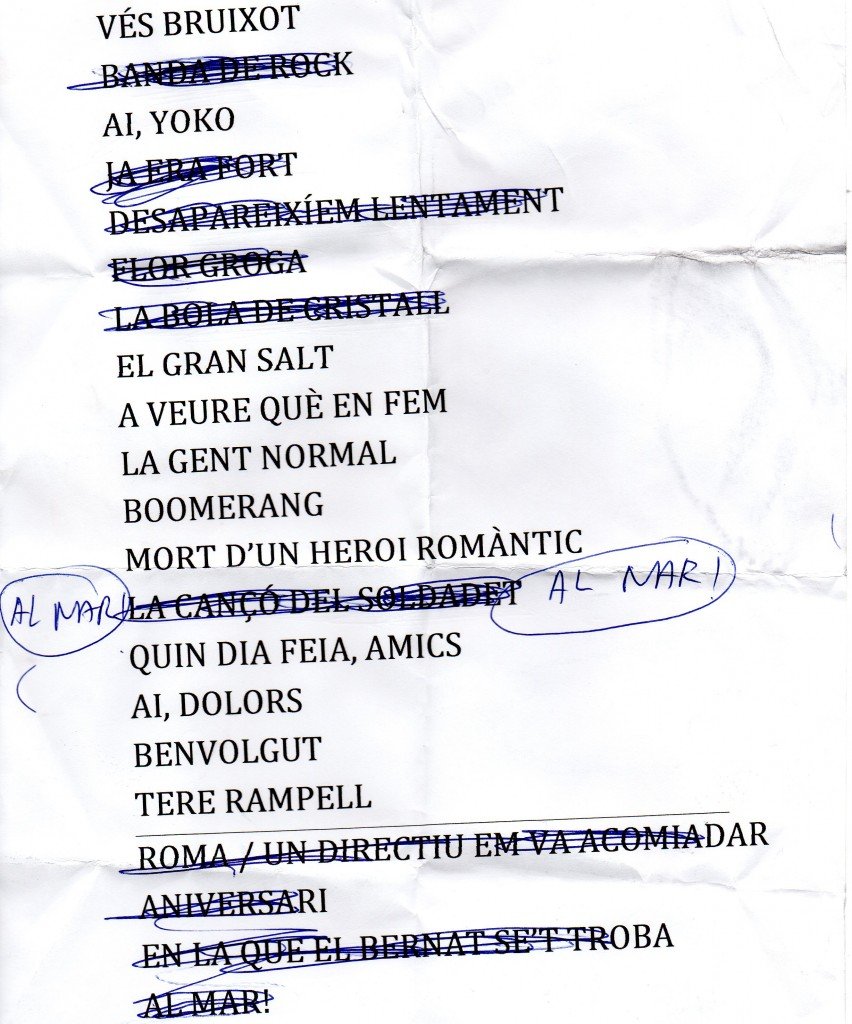 VÉS BRUIXOT
BANDA DE ROCK
AI, YOKO
JA ERA FORT
DESAPAREIXÍEM LENTAMENT
FLOR GROGA
LA BOLA DE CRISTALL
EL GRAN SALT
A VEURE QUÈ EN FEM
LA GENT NORMAL
BOOMERANG
MORT D'UN HEROI ROMÀNTIC
AL MAR! LA CANÇÓ DEL SOLDADET AL MAR!
QUIN DIA FEIA, AMICS
AI, DOLORS
BENVOLGUT
TERE RAMPELL
ROMA / UN DIRECTIU EM VA ACOMIADAR
ANIVERSARI
EN LA QUE EL BERNAT SE'T TROBA
AL MAR!